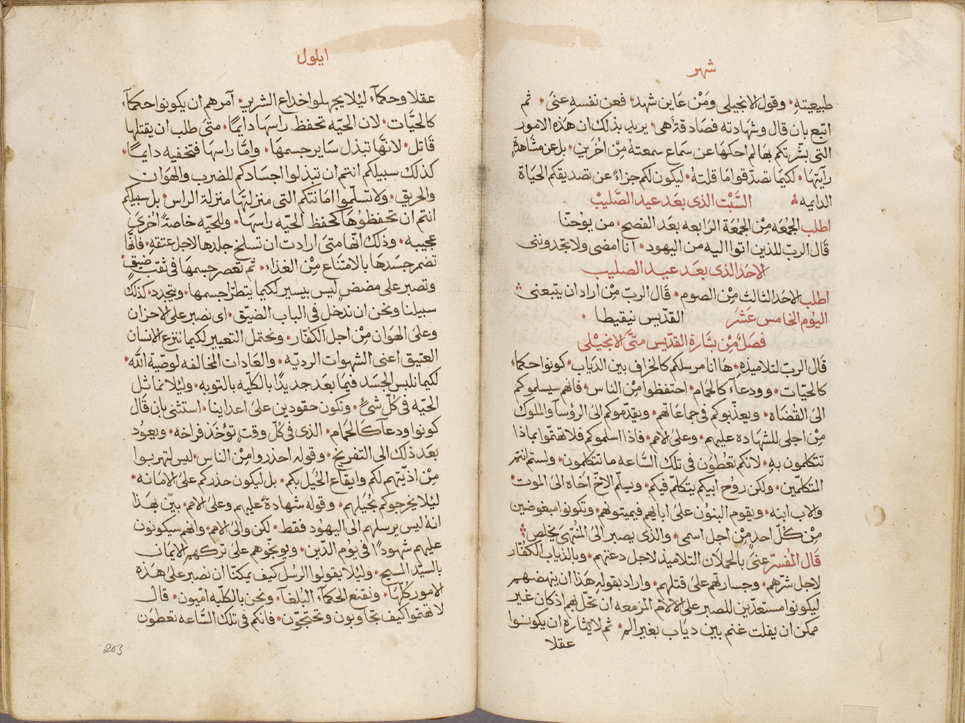 شهر
طبيعيته وقول الانجيلي ومَنْ عاين شهد فعن نفسه عنى ثم
اتبع بان قال وشهادته فصادقة هي يريد بذلك ان هذه الامور
التي بشرتكم بها لم احكها عن سماع سمعته مِنْ اخرين بل عن مشاهدة
رايتها لكيما تصدقوا ما قلته ليكون لكم جزاء عن تصديقكم الحياة
الدايمه السَّبْت الذى بعد عيد الصَّليبْ
اطلب الجُمُعَه مِنْ الجُمعَة الرّابعه بعَد الفصح من يوُحنّا
قال الربّ للذين اتوا اليه من اليهود انا امضى ولا تجدونني
الاحد الذى بَعد عيد الصليب
اطلب الاحَد الثالث مِنْ الصوم قال الربّ مَنْ اراد ان يتبعنى
اليوم الخامس عَشَرَ القدّيس نيقيطا
فَصْلٌ مِنْ بشارة القدّيس متَّى الانجيلى
قال الربّ لتلاميذه هَا انا مرسلكم كالخراف بين الذياب كونوا حكماء
كالحيّات وودعاء كالحمام احتفظوا مِنْ الناس فانهم يسلموكم
الى القُضَاه ويعذّبوكم في جماعاتهم ويقدّموكم الى الرؤسا والملوك
مِنْ اجلى للشهاده عليهم وعلى الامم فاذا اسلموكم فلا تهتمّوا بماذا
تتكلمون به لانكم تعُطوُن في تلك السَّاعه ما تتكلمون ولستم انتم
المتكلمين ولكن روُح ابيكم يتكلم فيكم ويسلم الاخ اخاه الى الموت
والاب ابنه ويقوم البنوُن على ابائهم فيميتوهم وتكونوا مبغوضين
مِنْ كُلّ احد مِنْ اجل اسمى والذى يصبر الى المُنتهى يخلص
قال المُفسّر عنى بالحملان التلاميذ لاجل دعتهم وبالذياب الكفّار
لاجل شرّهم وجسارتهم على قتلهم واراد بقوله هَذا ان ينهضهم
ليكونوا مستعدّين للصبر على الالام المزمعه ان تحلّ بهم اذ كان غير
ممكن ان يفلت غنم بين دياب بغير الم ثم لايثاره ان يكونوا
عقلا
ايلول
عقلا وحكماء ليُلا يجهلوا خداع الشرير امرهم ان يكونوا حكماء
كالحيَّات لان الحيّه تحفظ راسها دايمًا متى طلب ان يقتلها
قاتل لانهّا تبذل ساير جسمها وامّا راسها فتخفيه دايمًا
كذلك سبيلكم انتم ان تبذلوا اجسادكم للضرب والهَوان
والحريق ولا تسلّموا امانتكم التى منزلتها منزلة الراس بل سبيلكم
انتم ان تحفظوُهَا كحفظ الحيّه راسها وللحيّه خاصّة اُخرى
عجيبه وذلك انها متى ارادت ان تسلخ جلدها لاجل عتقه فانها
تضمر جسَدها بالامتناع مِنْ الغذاء ثم تعصر جسمها في ثقب ضيّق
وتصبر على مضض ليس بيسير لكيما يتطرّا جسمها ويتجدد كذلك
سبيلنا ونحن ان ندخل في الباب الضيّق اى نصبر على الاحزان
وعلى الهَوان مِنْ اجل الكفّار ونحتمل التعيير لكيما ننزع الانسان
العتيق اعنى الشهوات الرديّه والعَادات المخالفه لوصيّة الله
لكيما نلبس الجسَد فيما بعد جديدًا بالكليّه بالتوبه وليُلا نماثل
الحيّه في كُلّ شيء ونكون حقودين على اعداينا استثنى بان قال
كونوا ودعاء كالحمام الذى في كلّ وقت توُخَذ فراخه ويعوُد
بعَد ذلك الى التفريخ وقوله احذروا مِنْ الناس ليس لتهربوا
مِنْ اذيّتهم لكم وايقاع الحُيَل بكم بل ليكون حذركم على الامانه
ليُلا يخرجوكم بحُيلهم وقوله شهادة عليهم وعلى الامم بيّن بهَذا
انه ليس يرسلهم الى اليهود فقط لكن والى الامم وانهم سيكونون
عليهم شهودًا في يوم الدّين ويوبّخوهم على تركهم الايمان
بالسيّد المسيح وليُلا يقولوا الرسُل كيف يمكننا ان نصبر على هذه
الامور كلّها ونقنع الحكماء البُلغاء ونحن بالكليّه اميون قال
لا تهتموا كيف تجاوبون وتحتجّون فانكم في تلك السَّاعه تعطوُن
203